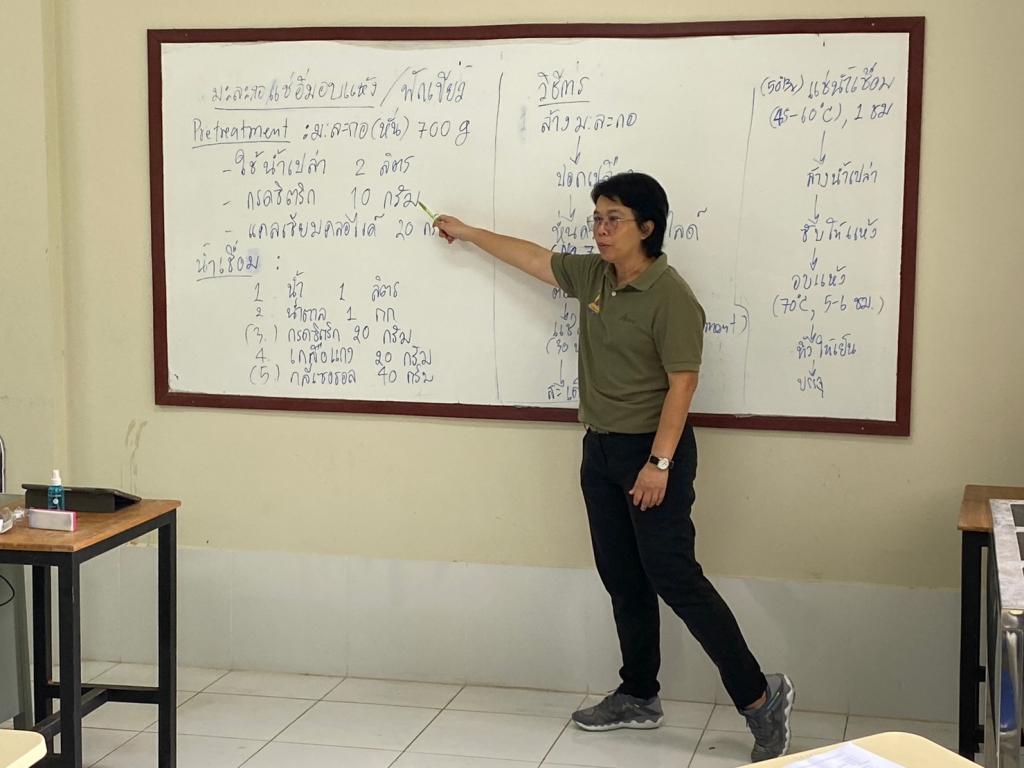 มะละกอแช่อิ่มอบแห้ง / ฟักเขียว
Pretreatment : มะละกอ (หั่น) 700 g
- ใช้น้ำเปล่า 2 ลิตร
- กรดซิตริก 10 กรัม
- แคลเซียมคลอไรด์ 20
น้ำเชื่อม :
1. น้ำ 1 ลิตร
2. น้ำตาล 1 กก
(3.) กรดซิตริก 20 กรัม
4. เกลือแกง 20 กรัม
(5.) กลีเซอรอล 40 กรัม
วิธีการ
ล้างมะละกอ
ปอกเปลือก
ไลด์
(30
(50°Bx) แช่น้ำเชื่อม
(45-60°C), 1 ชม
ล้างน้ำเปล่า
ซับให้แห้ง
อบแห้ง
(70°C, 5-6 ชม.)
ทิ้งให้เย็น
บรรจุ